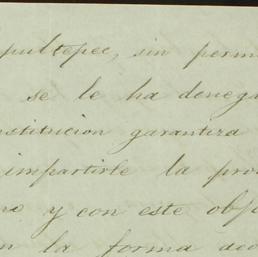 pultepec, sin perm
se le ha denega
nstitucion garantiza
impartirle la pro
y con este obj
n la forma